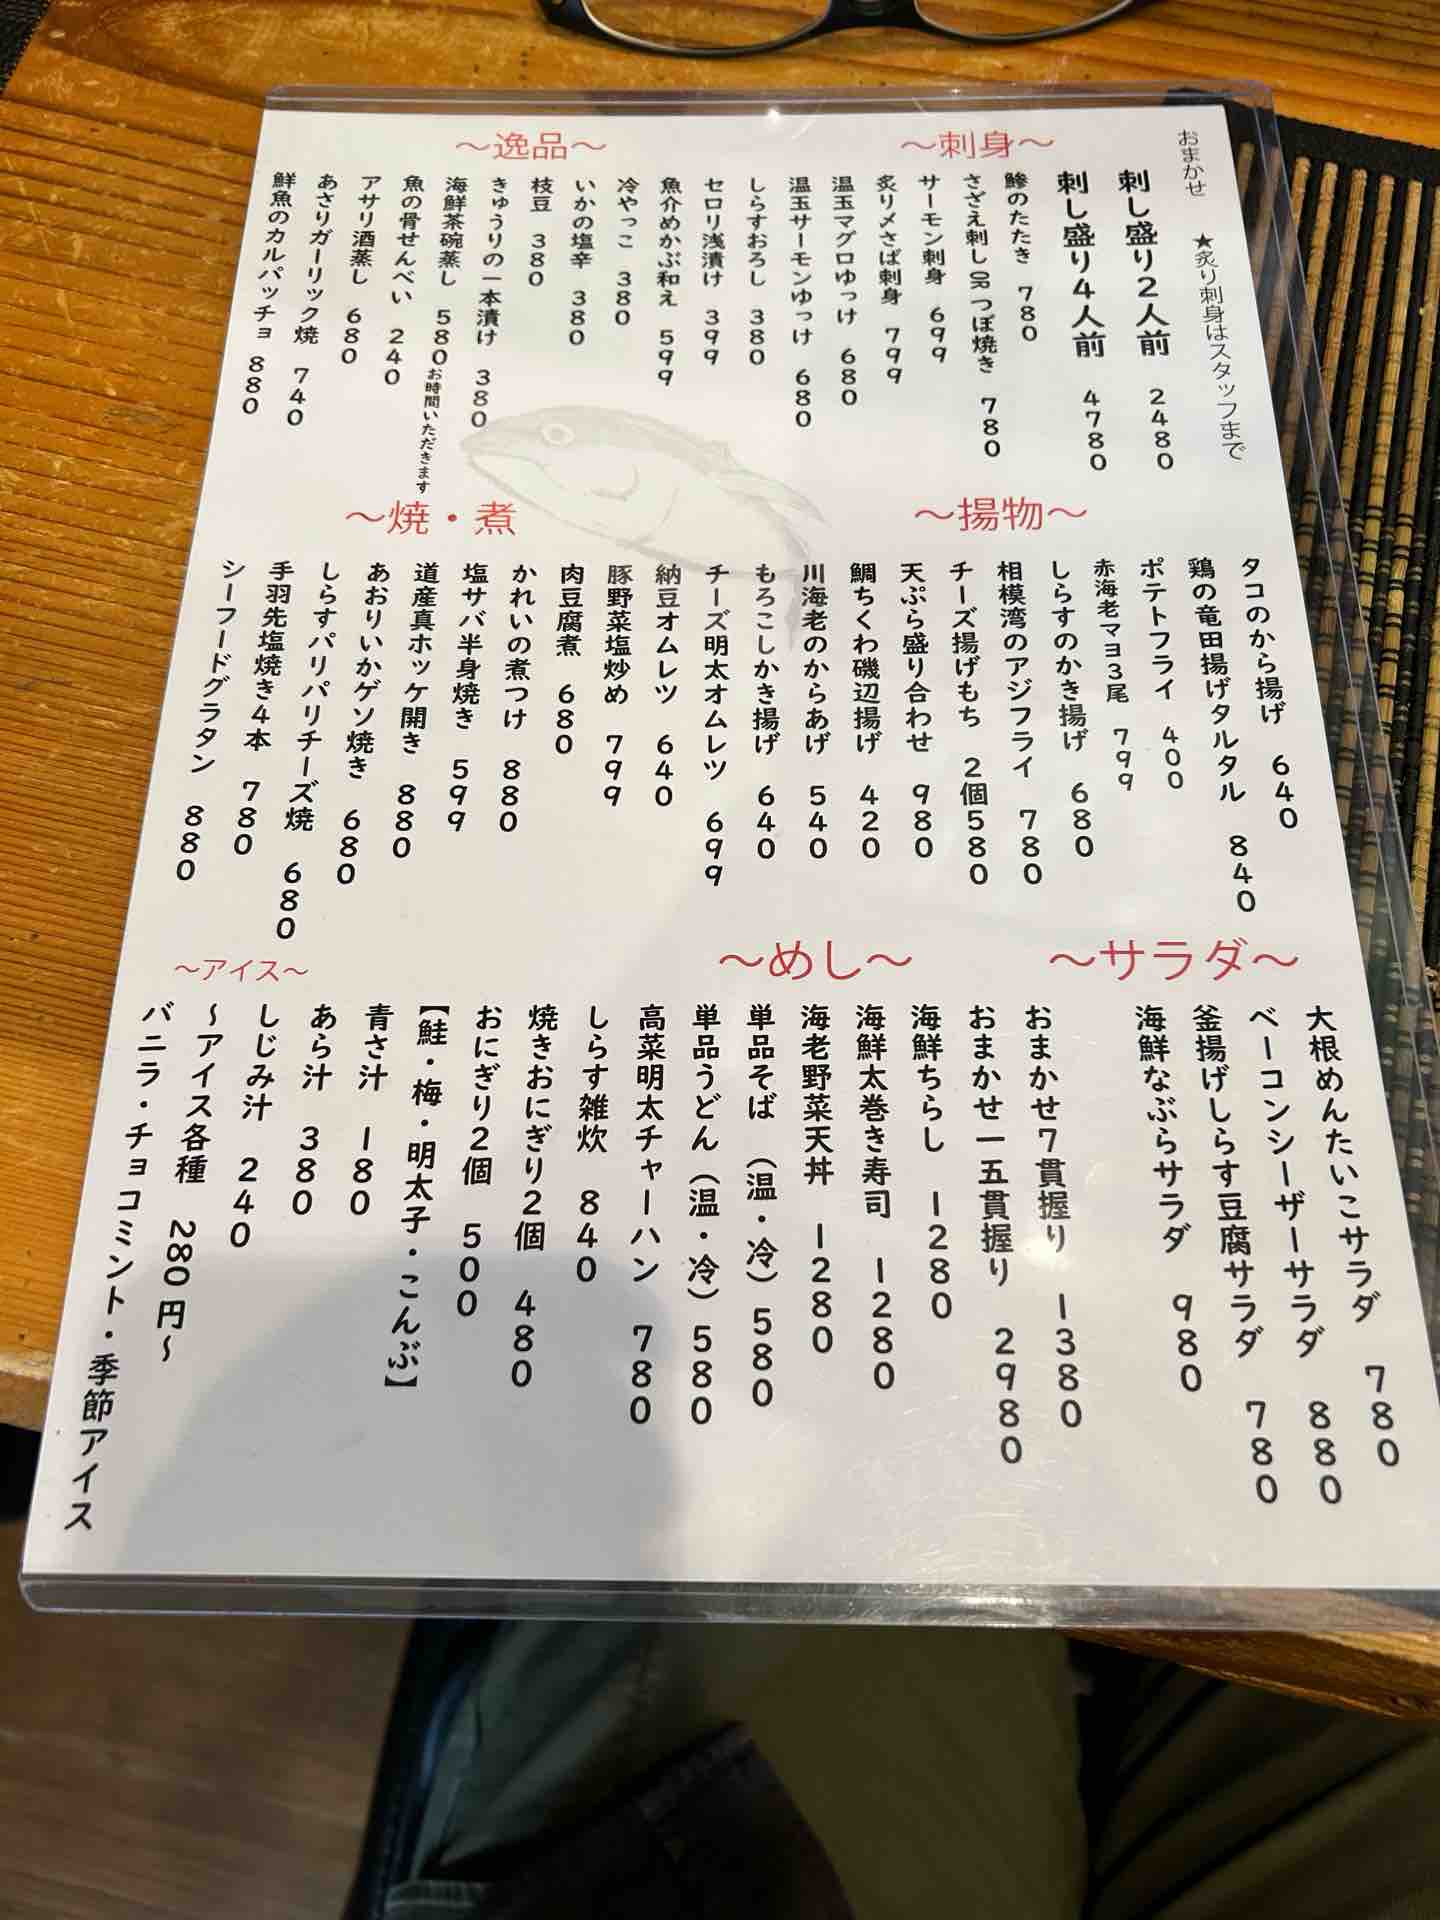 おまかせ ★炙り刺身はスタッフまで
〜刺身〜
刺し盛り2人前 2480
刺し盛り4人前 4780
鯵のたたき 780
さざえ刺し or つぼ焼き 780
サーモン刺身 699
炙り〆さば刺身 799
温玉マグロゆっけ 680
温玉サーモンゆっけ 680
〜逸品〜
しらすおろし 380
セロリ浅漬け 399
魚介めかぶ和え 599
冷やっこ 380
いかの塩辛 380
枝豆 380
きゅうりの一本漬け 380
海鮮茶碗蒸し 580お時間いただきます
魚の骨せんべい 240
アサリ酒蒸し 680
あさりガーリック焼 740
鮮魚のカルパッチョ 880
〜揚物〜
タコのから揚げ 640
鶏の竜田揚げタルタル 840
ポテトフライ 400
赤海老マヨ3尾 799
しらすのかき揚げ 680
相模湾のアジフライ 780
チーズ揚げもち 2個580
天ぷら盛り合わせ 980
鯛ちくわ磯辺揚げ 420
川海老のからあげ 540
もろこしかき揚げ 640
〜焼・煮〜
チーズ明太オムレツ 699
納豆オムレツ 640
豚野菜塩炒め 799
肉豆腐煮 680
かれいの煮つけ 880
塩サバ半身焼き 599
道産真ホッケ開き 880
あおりいかゲソ焼き 680
しらすパリパリチーズ焼 680
手羽先塩焼き4本 780
シーフードグラタン 880
〜サラダ〜
大根めんたいこサラダ 780
ベーコンシーザーサラダ 880
釜揚げしらす豆腐サラダ 780
海鮮なぶらサラダ 980
〜めし〜
おまかせ7貫握り 1380
おまかせ一五貫握り 2980
海鮮ちらし 1280
海鮮太巻き寿司 1280
海老野菜天丼 1280
単品そば（温・冷）580
単品うどん（温・冷）580
高菜明太チャーハン 780
しらす雑炊 840
焼きおにぎり2個 480
おにぎり2個 500
【鮭・梅・明太子・こんぶ】
青さ汁 180
あら汁 380
しじみ汁 240
〜アイス〜
〜アイス各種 280円〜
バニラ・チョコミント・季節アイス